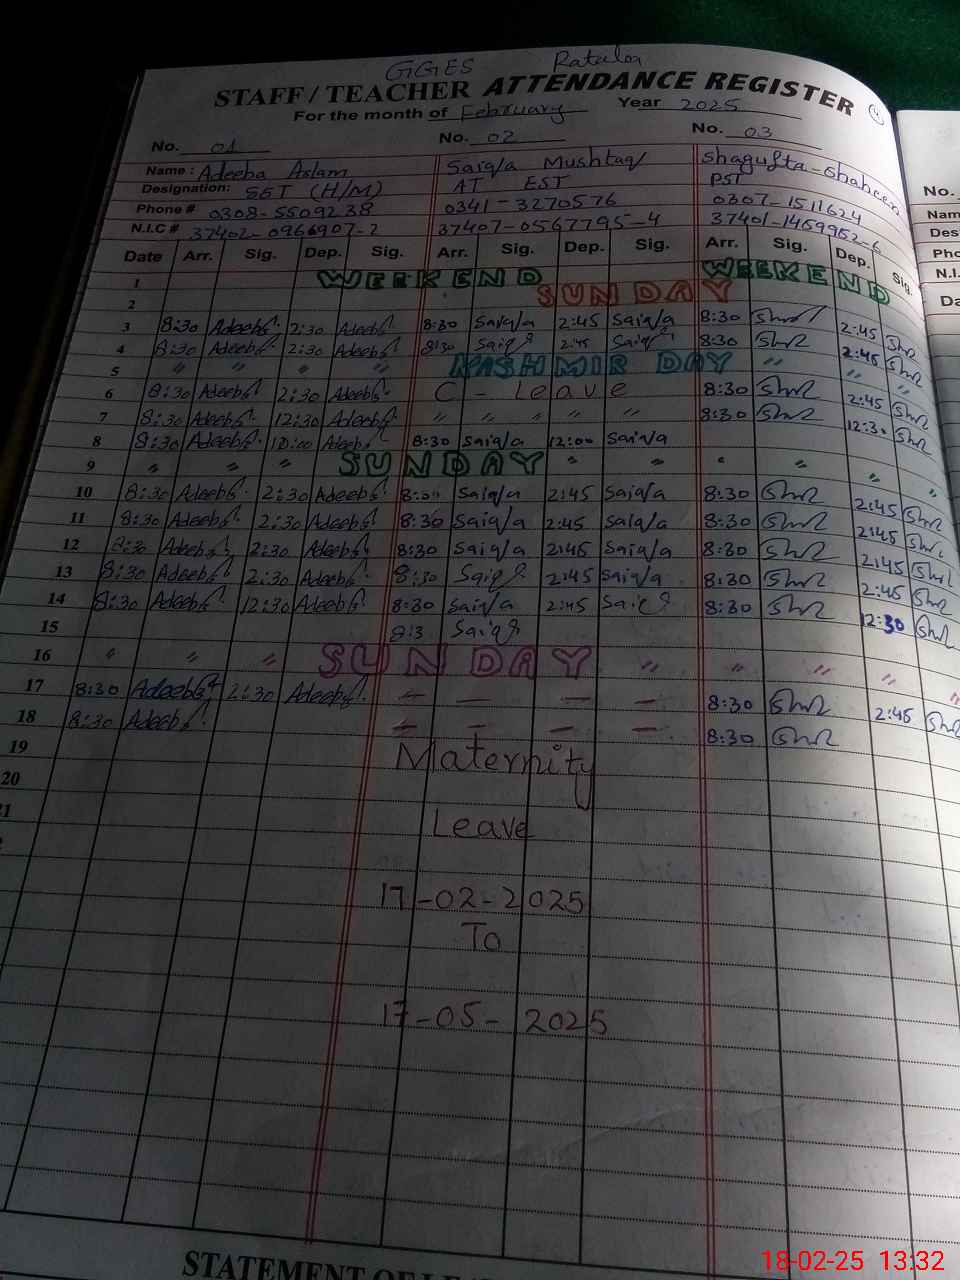 GGES Ratala
STAFF / TEACHER ATTENDANCE REGISTER
For the month of February Year 2025
No. 01 No. 02 No. 03
Name: Adeeba Aslam Saiqa Mushtaq Shagufta Shaheen
Designation: SST (H/M) AT EST PST
Phone # 0308-5509238 0341-3270576 0307-1511624
N.I.C # 37402-0966907-2 37407-0567795-4 37401-1459952-6
Date Arr. Sig. Dep. Sig. Arr. Sig. Dep. Sig. Arr. Sig. Dep. Sig.
1 WEEKEND WEEKEND
2 SUNDAY
3 8:30 Adeeba 2:30 Adeeba 8:30 Saiqa 2:45 Saiqa 8:30 2:45
4 8:30 Adeeba 2:30 Adeeba 8:30 Saiqa 2:45 Saiqa 8:30 2:45
5 " " " " KASHMIR DAY " " "
6 8:30 Adeeba 2:30 Adeeba C - Leave 8:30 2:45
7 8:30 Adeeba 12:30 Adeeba " " " " " 8:30 12:30
8 8:30 Adeeba Adeeba 8:30 Saiqa 12:00 Saiqa
9 " " " SUNDAY " " " " " "
10 8:30 Adeeba 2:30 Adeeba 8:30 Saiqa 2:45 Saiqa 8:30 2:45
11 8:30 Adeeba 2:30 Adeeba 8:30 Saiqa 2:45 Saiqa 8:30 2:45
12 8:30 Adeeba 2:30 Adeeba 8:30 Saiqa 2:45 Saiqa 8:30 2:45
13 8:30 Adeeba 2:30 Adeeba 8:30 Saiqa 2:45 Saiqa 8:30 2:45
14 8:30 Adeeba 12:30 Adeeba 8:30 Saiqa 2:45 Saiqa 8:30 12:30
15 8:3 Saiqa
16 " " " SUNDAY " " " " "
17 8:30 Adeeba 2:30 Adeeba - - - - 8:30 2:45
18 8:30 Adeeba - - - - 8:30
19 Maternity
20
21 Leave
17-02-2025
To
17-05-2025
STATEMENT OF
No.
Nam
Des
Pho
N.I.
Da
18-02-25 13:32